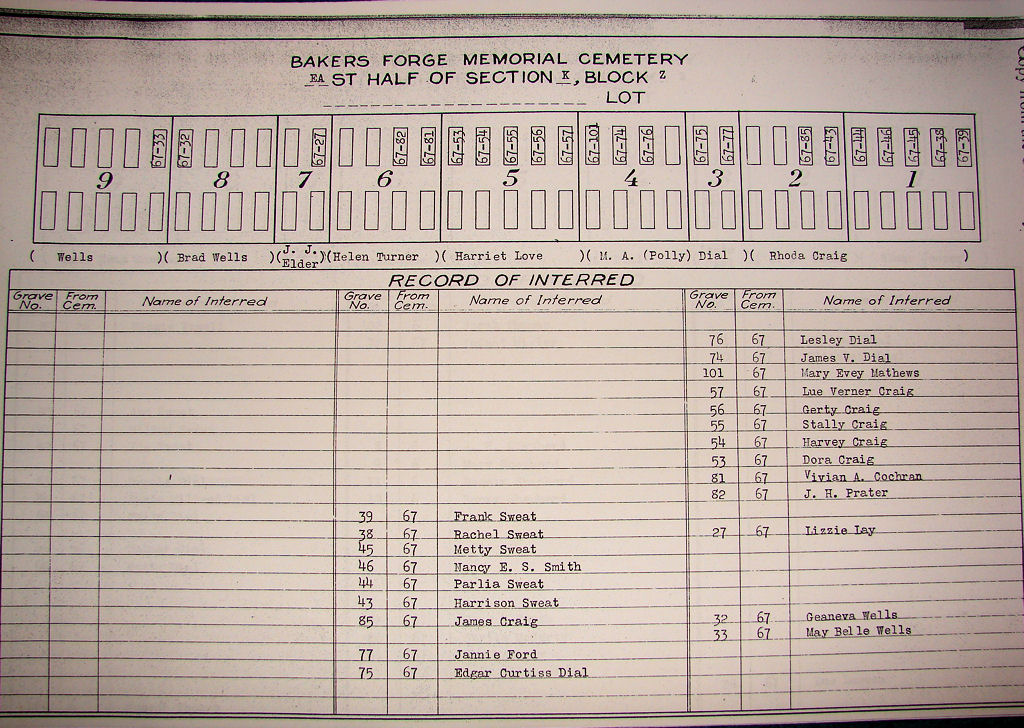 BAKERS FORGE MEMORIAL CEMETERY
EAST HALF OF SECTION K, BLOCK Z
LOT
67-33 67-32 67-27 67-82 67-81 67-53 67-54 67-55 67-56 67-57 67-101 67-74 67-76 67-75 67-77 67-85 67-43 67-44 67-46 67-45 67-38 67-39
9 8 7 6 5 4 3 2 1
( Wells )( Brad Wells )(J. J. Elder)(Helen Turner )( Harriet Love )( M. A. (Polly) Dial )( Rhoda Craig )
RECORD OF INTERRED
Grave No. From Cem. Name of Interred Grave No. From Cem. Name of Interred Grave No. From Cem. Name of Interred
39 67 Frank Sweat
38 67 Rachel Sweat
45 67 Metty Sweat
46 67 Nancy E. S. Smith
44 67 Parlia Sweat
43 67 Harrison Sweat
85 67 James Craig
77 67 Jannie Ford
75 67 Edgar Curtiss Dial
76 67 Lesley Dial
74 67 James V. Dial
101 67 Mary Evey Mathews
57 67 Lue Verner Craig
56 67 Gerty Craig
55 67 Stally Craig
54 67 Harvey Craig
53 67 Dora Craig
81 67 Vivian A. Cochran
82 67 J. H. Prater
27 67 Lizzie Lay
32 67 Geaneva Wells
33 67 May Belle Wells